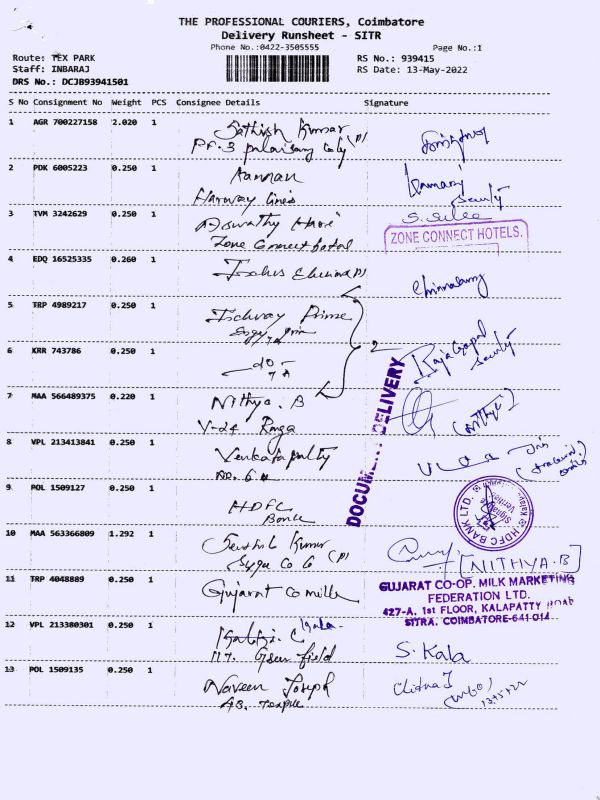 THE PROFESSIONAL COURIERS, Coimbatore
Delivery Runsheet - SITR
Phone No.:0422-3505555 Page No.:1
Route: TEX PARK RS No.: 939415
Staff: INBARAJ RS Date: 13-May-2022
DRS No.: DCJB93941501
S No Consignment No Weight PCS Consignee Details Signature
1 AGR 700227158 2.020 1 Sathish Kumar
PF.3
2 PDK 6005223 0.250 1 Kannan
Harway lines
3 TVM 3242629 0.250 1 Aswathy Hari S. Selva
Zone Connect hotel ZONE CONNECT HOTELS.
4 EDQ 16525335 0.260 1
5 TRP 4989217 0.250 1 Prime
6 KRR 743786 0.250 1 -do- RajaGopal
7 MAA 566489375 0.220 1 Nithya. B (Nithya)
V-24 Ranga
DOCUMENT DELIVERY
8 VPL 213413841 0.250 1 Venkatapathy
9 POL 1509127 0.250 1 HDFC
Bank
HDFC BANK LTD.
Signature Verified
10 MAA 563366809 1.292 1 Senthil Kumar [NITHYA.B]
11 TRP 4048889 0.250 1 Gujarat Co milk
GUJARAT CO-OP. MILK MARKETING
FEDERATION LTD.
427-A, 1st FLOOR, KALAPATTY ROAD
SITRA, COIMBATORE-641 014
12 VPL 213380301 0.250 1 Kala
Green field S. Kala
13 POL 1509135 0.250 1 Naveen Joseph Chitra J
13-5-22